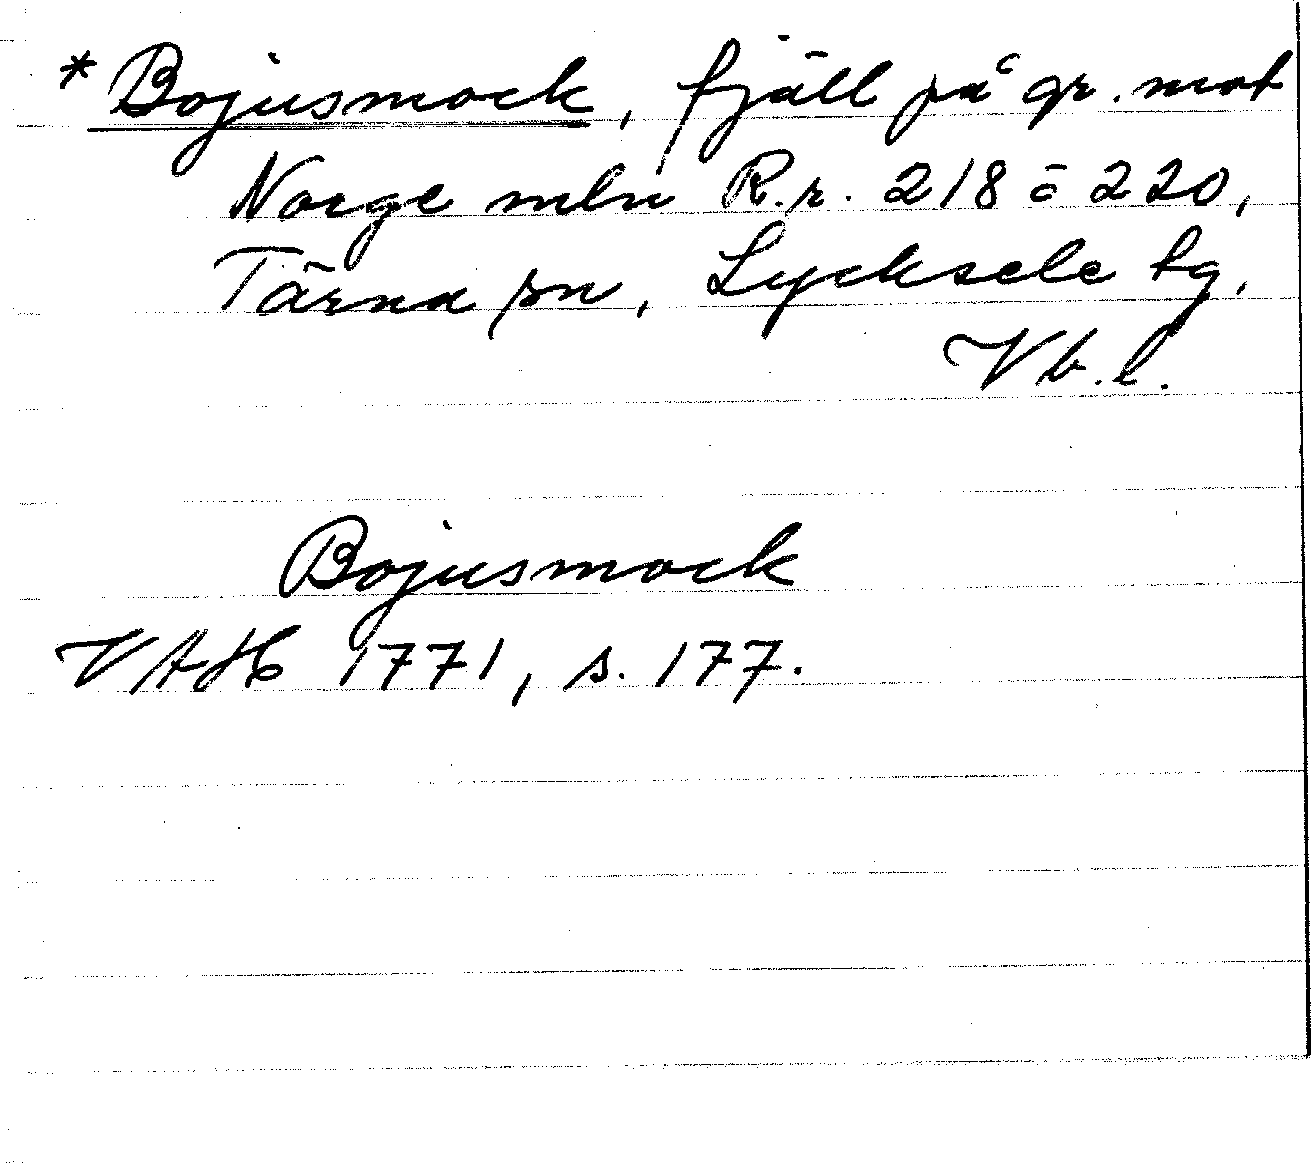 *Bojusmock, fjäll på gr. mot
Norge mln R.r. 218 o 220,
Tärna sn, Lycksele tg,
Vb.l.
Bojusmock
VAH 1771, s. 177.